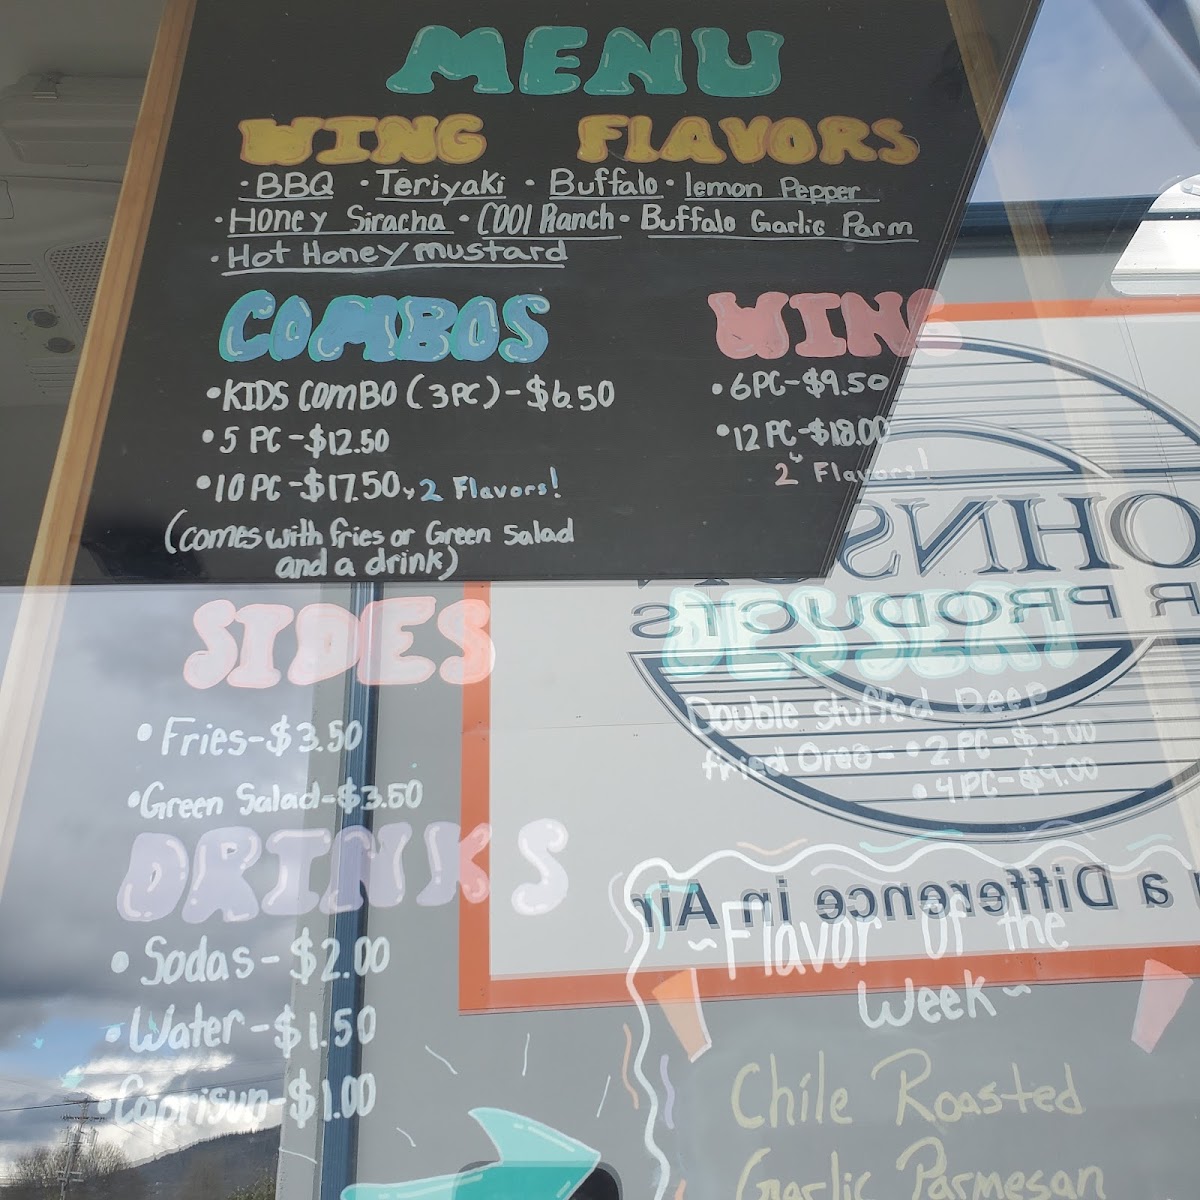 MENU
WING FLAVORS
• BBQ • Teriyaki • Buffalo • lemon Pepper
• Honey Siracha • COOl Ranch • Buffalo Garlic Parm
• Hot Honey mustard
COMBOS
•KIDS COMBO (3PC)-$6.50
•5 PC-$12.50
•10 PC-$17.50 2 Flavors!
(comes with fries or Green Salad
and a drink)
WINGS
•6PC-$9.50
•12 PC-$18.00
2 Flavors!
SIDES
•Fries-$3.50
•Green Salad-$3.50
DRINKS
•Sodas-$2.00
•Water-$1.50
•Caprisun-$1.00
DESSERT
Double stuffed Deep
fried Oreo- •2PC-$5.00
•4PC-$9.00
~Flavor Of the
Week~
Chile Roasted
Garlic Parmesan
OHNS
R PRODUCTS
a Difference in Air